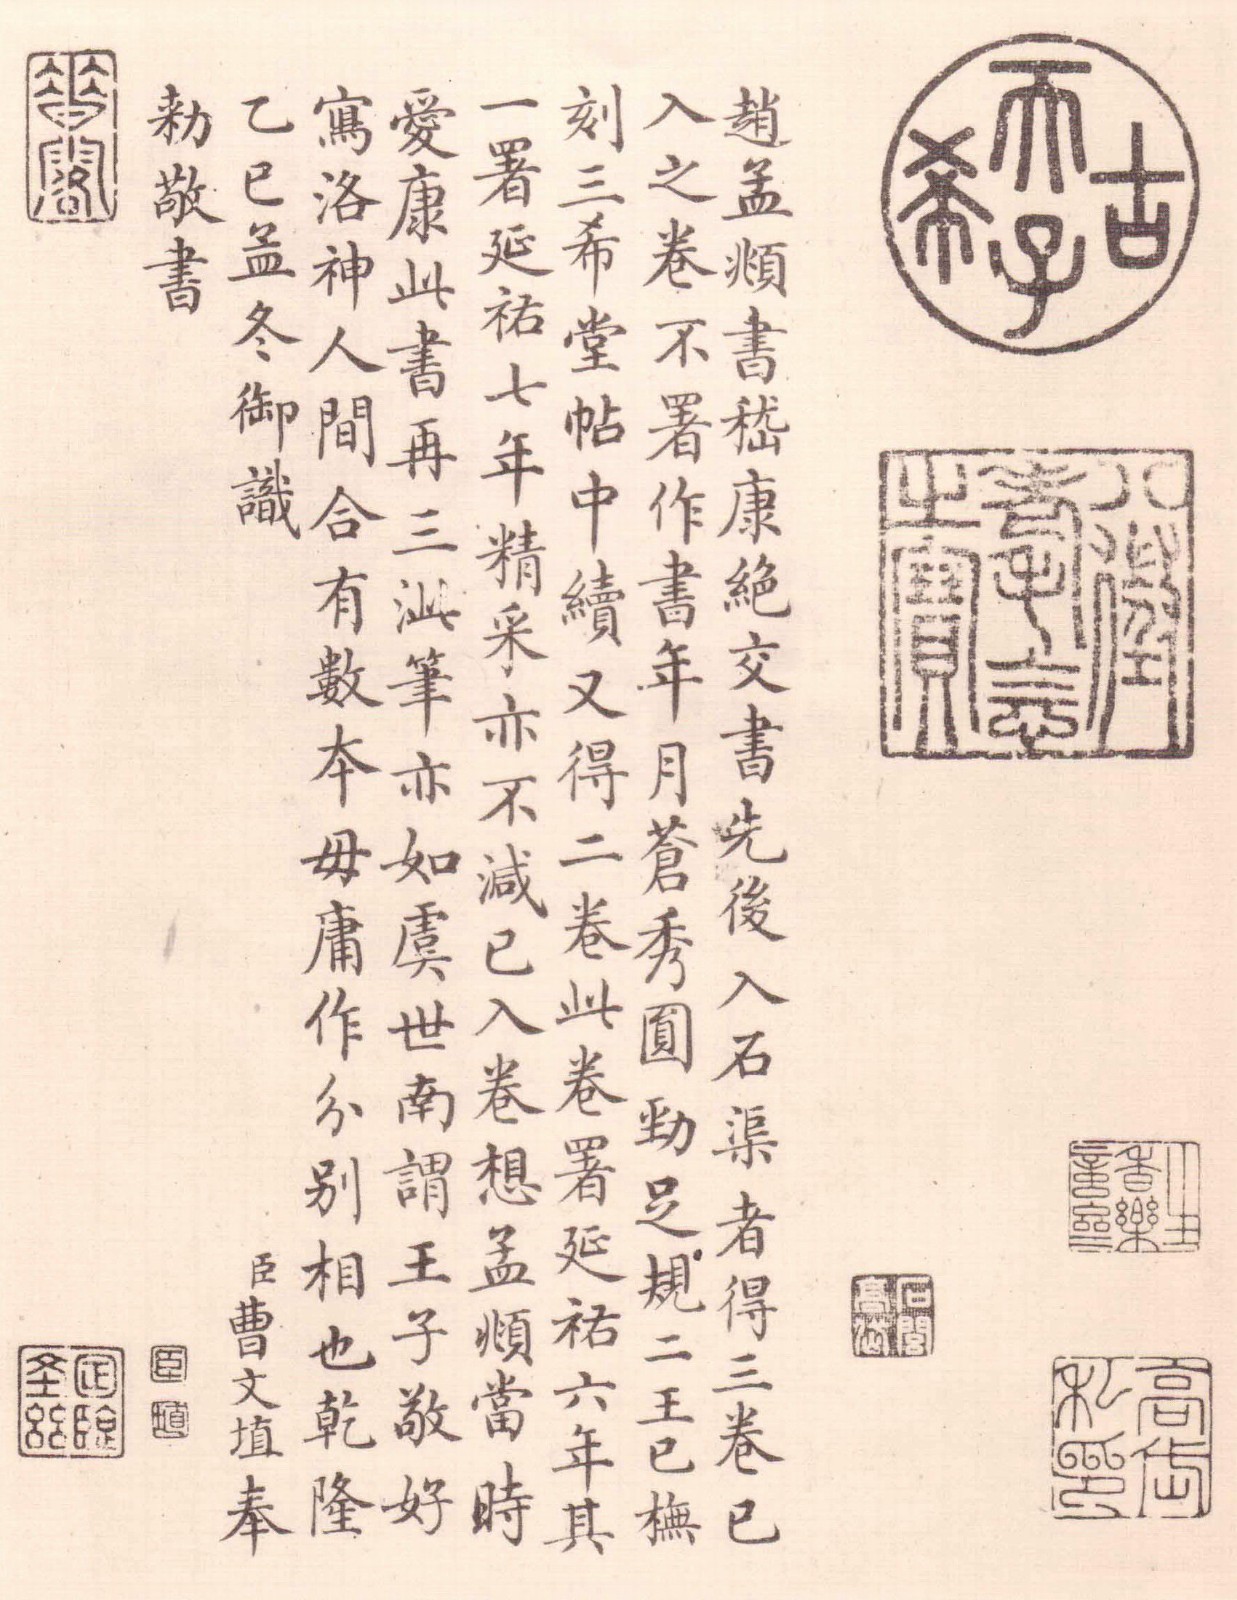 古希天子
八徵耄念之寶
趙孟頫書嵇康絶交書先後入石渠者得三卷已
入之卷不署作書年月蒼秀圓勁足規二王已橅
刻三希堂帖中續又得二卷此卷署延祐六年其
一署延祐七年精采亦不減已入卷想孟頫當時
愛康此書再三泚筆亦如虞世南謂王子敬好
寫洛神人間合有數本毋庸作分别相也乾隆
乙巳孟冬御識
臣曹文埴奉
勅敬書
臣
埴